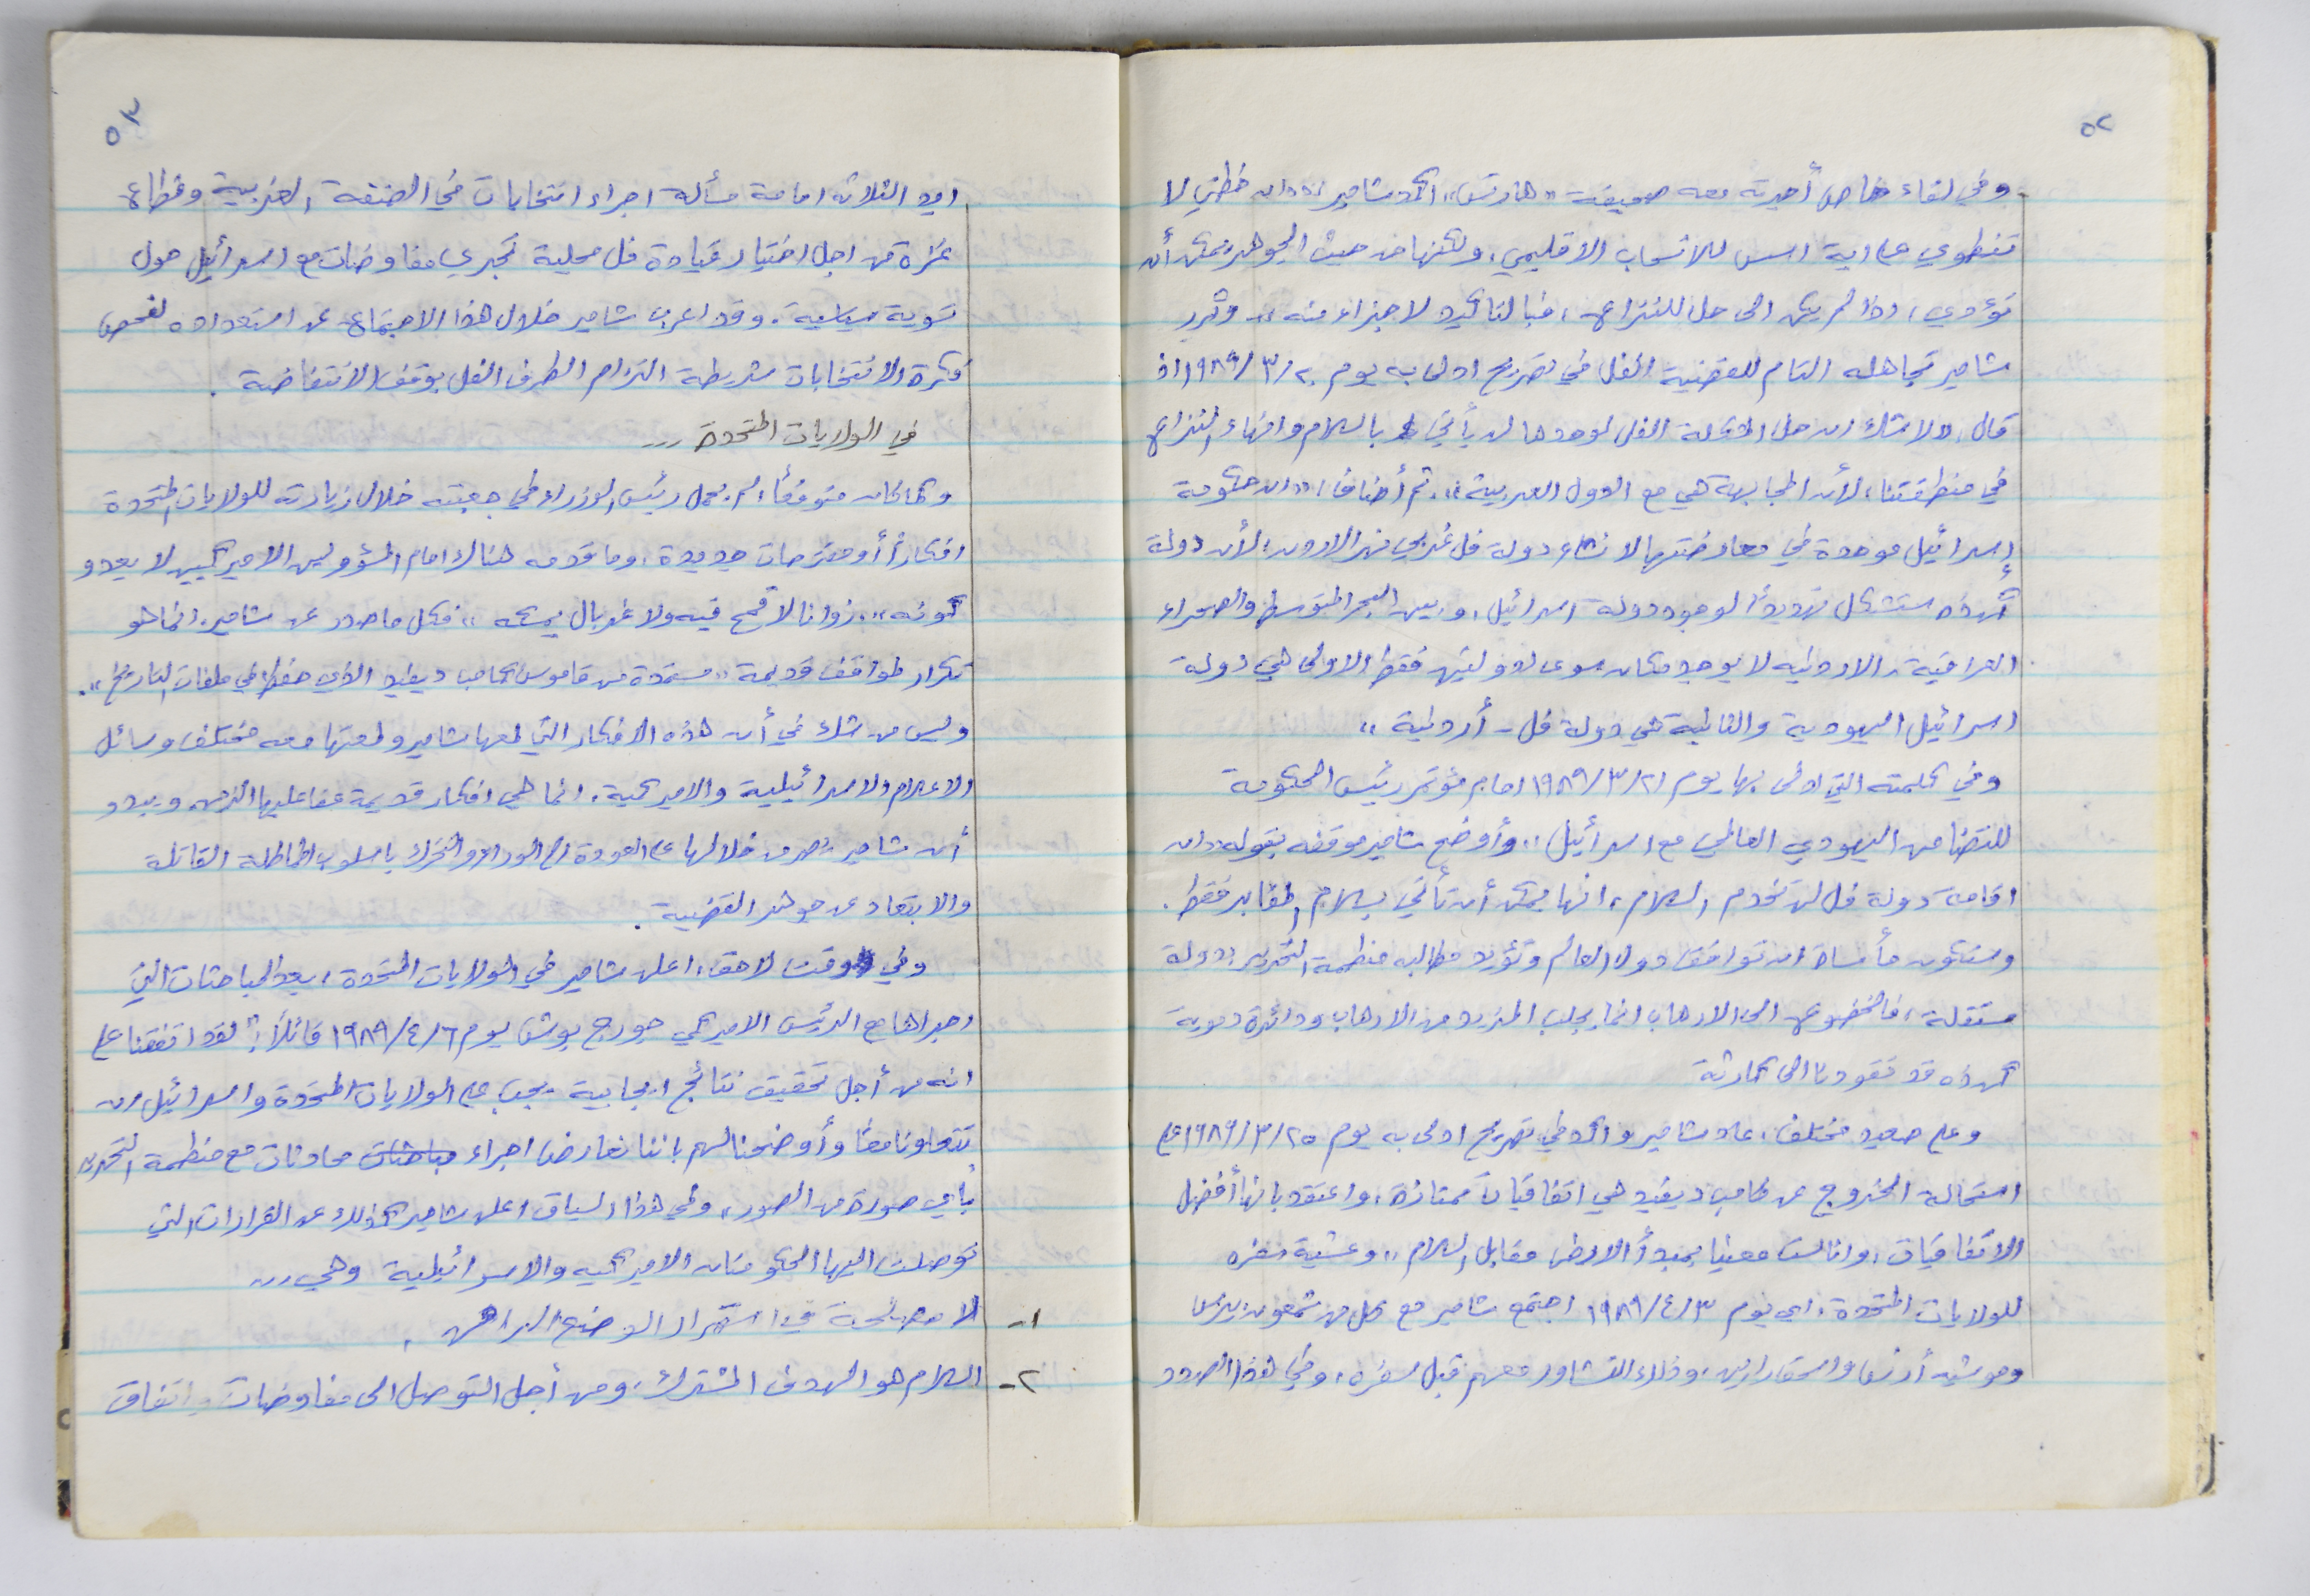 ٥٢
وفي لقاء خاص أجرته معه صحيفة «هآرتس» اكد شامير: «ان خطتي لا
تنطوي على اية اسس للانسحاب الاقليمي، ولكنها من حيث الجوهر يمكن أن
تؤدي، اذا لم يكن الى حل للنزاع، فبالتأكيد لاجزاء منه» وتبرر
شامير تجاهله التام للقضية الفل في تصريح ادلى به يوم ٢٠/٣/١٩٨٩ اذ
قال «لا شك ان حل المشكلة الفل لوحدها لن يأتي بالسلام وانهاء النزاع
في منطقتنا، لأن المجابهة هي مع الدول العربية»، ثم أضاف، «ان حكومة
إسرائيل موحدة في معارضتها لانشاء دولة فل غربي نهر الاردن، لأن دولة
كهذه ستشكل تهديداً لوجود دولة اسرائيل، وبين البحر المتوسط والصحراء
العراقية - الاردنيه لا يوجد مكان سوى لدولتين فقط الاولى هي دولة
اسرائيل اليهودية والثانية هي دولة فل - أردنية»
وفي كلمته التي ادلى بها يوم ٢١/٣/١٩٨٩ امام مؤتمر رئيس الحكومة
للتضامن اليهودي العالمي مع اسرائيل» وأوضح شامير موقفه بقوله «ان
اقامة دولة فل لن تخدم السلام، انها يمكن أن تأتي بسلام المقابر فقط.
وستكون مأساة ان توافق دول العالم وتؤيد مطالبه منظمة التحرير بدولة
مستقلة، فالخضوع الى الارهاب انما يجلب المزيد من الارهاب ودائرة دموية
كهذه قد تقودنا الى كارثة
وعلى صعيد مختلف، عاد شامير واكد في تصريح ادلى به يوم ٢٥/٣/١٩٨٩ على
استحالة الخروج عن كامب ديفيد هي اتفاقيات ممتازة، واعتقد بانها أفضل
الاتفاقيات، وانا لست معنيا بمبدأ الارض مقابل السلام» وعشية سفره
للولايات المتحدة، اي يوم ٣/٤/١٩٨٩ اجتمع شامير مع كل من شمعون بيرس
وموشيه أرنس واسحق رابين، وذلك للتشاور معهم قبل سفره، وفي هذا الصدد
٥٣
ايد الثلاثه اقامة مسألة اجراء انتخابات في الضفة الغربية وقطاع
غزة من اجل اختيار قيادة فل محلية تجري مفاوضات مع اسرائيل حول
تسوية سياسية. وقد اعرب شامير خلال هذا الاجتماع عن استعداده لفحص
فكرة الانتخابات شريطة التزام الطرف الفل بوقف الانتفاضة.
في الولايات المتحدة ...
وكما كان متوقعاً، لم يحمل رئيس الوزراء في جعبته خلال زيارته للولايات المتحدة
افكاراً أو مقترحات جديدة، وما قدمه هناك امام المسؤولين الاميركيين لا يعدو
كونه «زوانا لا قمح فيه ولا غربال يمسكه» فكل ما صدر عن شامير، انما هو
تكرار لمواقف قديمة «مستمدة من قاموس كامب ديفيد الذي حفظ في ملفات التاريخ».
وليس من شك في أن هذه الافكار التي لمعها شامير ولمعتها معه مختلف وسائل
الاعلام الاسرائيلية والاميركية، انما هي افكار قديمة عفا عليها الزمن ويبدو
أن شامير يصر من خلالها على العودة الى الوراء والتحرك باسلوب المماطلة القاتلة
والابتعاد عن جوهر القضية.
وفي وقت لاحق، اعلن شامير في الولايات المتحدة، بعد المباحثات التي
اجراها مع الرئيس الاميركي جورج بوش يوم ٦/٤/١٩٨٩ قائلاً: "لقد اتفقنا على
انه من أجل تحقيق نتائج ايجابية يجب على الولايات المتحدة واسرائيل ان
تتعاونا معًا وأوضحنا لهم باننا نعارض اجراء مباحثات محادثات مع منظمة التحرير
بأي صورة من الصور» وفي هذا السياق اعلن شامير كذلك عن القرارات التي
توصلت اليها الحكومتان الاميركيه والاسرائيلية وهي ...
١- لا مصلحة في استمرار الوضع الراهن.
٢- السلام هو الهدف المشترك، ومن أجل التوصل الى مفاوضات واتفاق